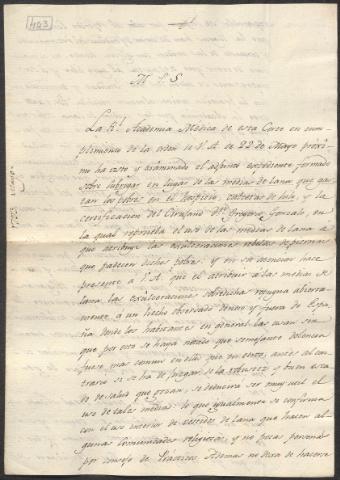 403
M. P. S.
La Rl. Academia Médica de esta Corte en cum-
plimiento de la orden de V.A. de 22 de Mayo próxi-
mo ha visto y examinado el adjunto expediente formado
sobre subrogar en lugar de las medias de lana que gas-
tan los pobres en el Hospicio, calcetas de hilo, y la
certificación del Cirujano Dn. Gregorio Gonzalo, en
la qual reprueba el uso de las medias de lana a
que atribuye las exulceraciones rebeldes de piernas
que padecen dichos pobres; y en su atencion hace
presente a V.A. que el atribuir a las medias de
lana las exulceraciones sobredichas repugna abierta-
mente a un hecho observado dentro y fuera de Espa-
ña donde los habitantes en general las usan sin
que por esto se haya notado que semejante dolencia
fuese mas comun en ellos que en otros; antes al con-
trario si se ha de juzgar de la robustez y buen esta-
do de salud que gozan, se deduciria ser muy util el
uso de tales medias: lo que igualmente se confirma
con el uso interior de vestidos de lana que hacen al-
gunas Comunidades religiosas, y no pocas personas
por consejo de Prácticos. Ademas no dexa de hacerse